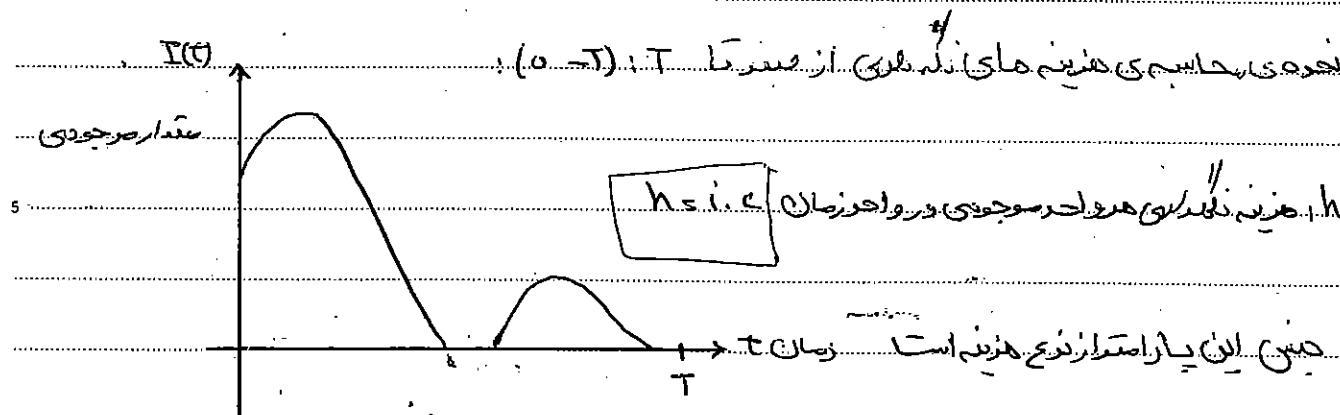 نحوه ی محاسبه ی هزینه های نگهداری از صفر تا T : (0 - T) :
I(t)
مقدار موجودی
h : هزینه نگهداری هر واحد موجودی در واحد زمان h = i.c
5
جنس این پارامتر از نوع هزینه است
زمان t
T